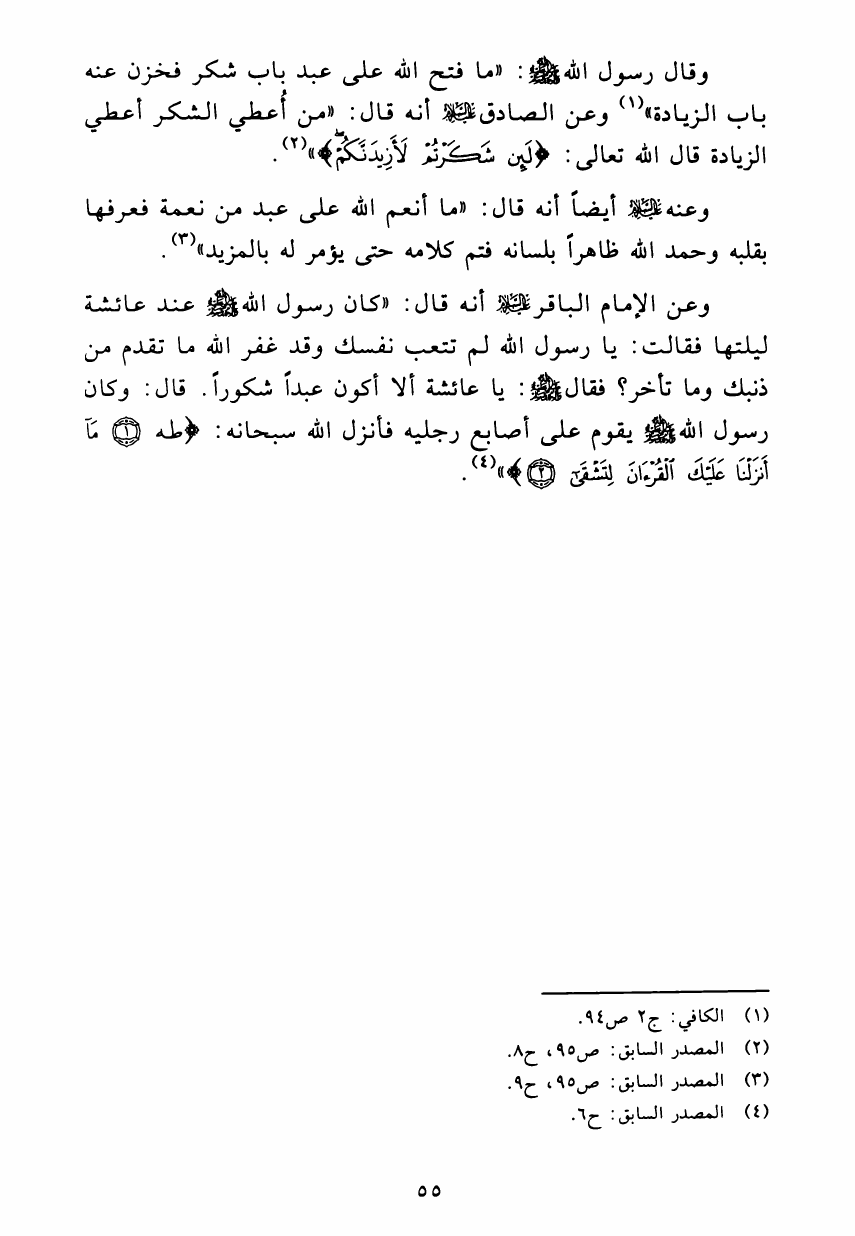 وقال رسول الله ﷺ: «ما فتح الله على عبد باب شكر فخزن عنه
باب الزيادة»(١) وعن الصادق عليه السلام أنه قال: «من أُعطي الشكر أعطي
الزيادة قال الله تعالى: ﴿لَئِن شَكَرْتُمْ لَأَزِيدَنَّكُمْ ۖ﴾»(٢).
وعنه عليه السلام أيضاً أنه قال: «ما أنعم الله على عبد من نعمة فعرفها
بقلبه وحمد الله ظاهراً بلسانه فتم كلامه حتى يؤمر له بالمزيد»(٣).
وعن الإمام الباقر عليه السلام أنه قال: «كان رسول الله ﷺ عند عائشة
ليلتها فقالت: يا رسول الله لم تتعب نفسك وقد غفر الله ما تقدم من
ذنبك وما تأخر؟ فقال ﷺ: يا عائشة ألا أكون عبداً شكوراً. قال: وكان
رسول الله ﷺ يقوم على أصابع رجليه فأنزل الله سبحانه: ﴿طه ۝١ مَآ
أَنزَلْنَا عَلَيْكَ ٱلْقُرْءَانَ لِتَشْقَىٰٓ ۝٢﴾»(٤).
(١) الكافي: ج٢ ص٩٤.
(٢) المصدر السابق: ص٩٥، ح٨.
(٣) المصدر السابق: ص٩٥، ح٩.
(٤) المصدر السابق: ح٦.
٥٥